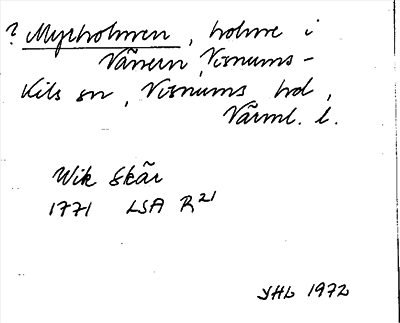 ? Myrholmen, holme i
Vänern, Visnums-
Kils sn, Visnums hd,
Värml. l.
Wik Skär
1771 LSA R21
YHL 1972